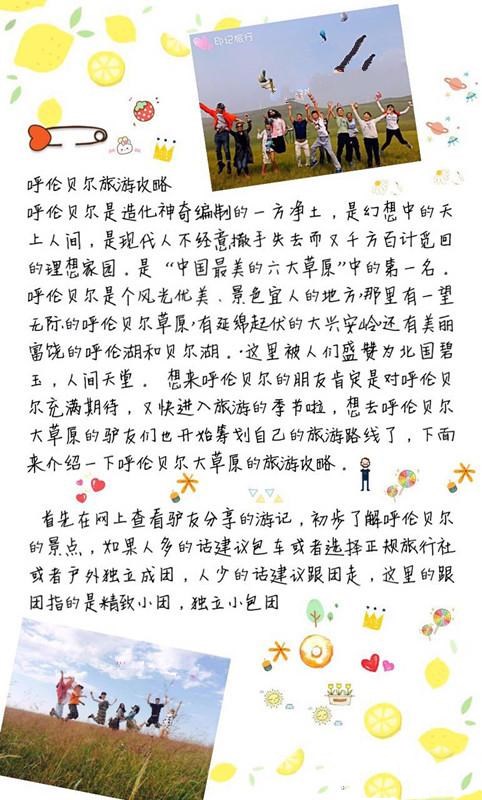 印记旅行
呼伦贝尔旅游攻略
呼伦贝尔是造化神奇编制的一方净土，是幻想中的天
上人间，是现代人不经意撒手失去而又千方百计觅回
的理想家园。是“中国最美的六大草原”中的第一名。
呼伦贝尔是个风光优美、景色宜人的地方,那里有一望
无际的呼伦贝尔草原,有延绵起伏的大兴安岭,还有美丽
富饶的呼伦湖和贝尔湖。·这里被人们盛赞为北国碧
玉，人间天堂。 想来呼伦贝尔的朋友肯定是对呼伦贝
尔充满期待，又快进入旅游的季节啦，想去呼伦贝尔
大草原的驴友们也开始筹划自己的旅游路线了，下面
来介绍一下呼伦贝尔大草原的旅游攻略。
首先在网上查看驴友分享的游记，初步了解呼伦贝尔
的景点，如果人多的话建议包车或者选择正规旅行社
或者户外独立成团，人少的话建议跟团走，这里的跟
团指的是精致小团，独立小包团